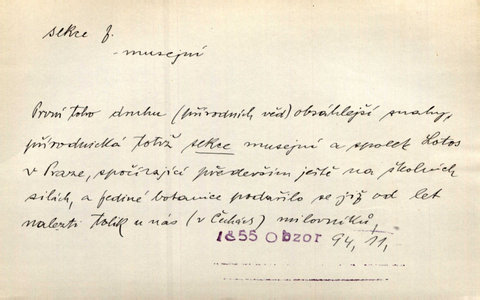 sekce f.
-musejní
První toho druhu (přírodních věd) obsáhlejší snahy,
přírodnická totiž sekce musejní a spolek Lotos
v Praze, spočívající především ještě na školních
silách, a jediné botanice podařilo se již od let
nalezti tolik u nás (v Čechách) milovníků,
1855 Obzor 94, 11,